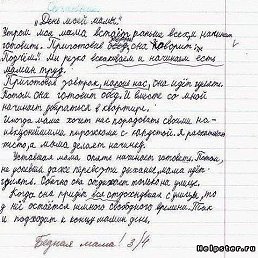 Сочинение
„День моей мамы"
Утром моя мама встаёт раньше всех и начинает
готовить. Приготовив обед, она говорит:
Подъём! Мы резко вскакиваем и начинаем есть
мамин труд.
Приготовив завтрак, накормив нас, она идёт гулять.
Потом она готовит обед. И вместе со мной
начинает убираться в квартире.
Иногда мама хочет нас порадовать своими на-
ивкуснейшими пирожками с капустой. Я раскатываю
тесто, а мама делает начинку.
Уставшая мама опять начинает готовить. Потом,
не успевая даже перевести дыхание, мама идёт
гулять. Обычно она отдыхает только на улице.
Когда она придёт вся отдохнувшая с улицы, то
у неё остаётся немного свободного времени. Так
и подходит к концу мамин день.
Бедная мама! 3/4
Helpster.ru